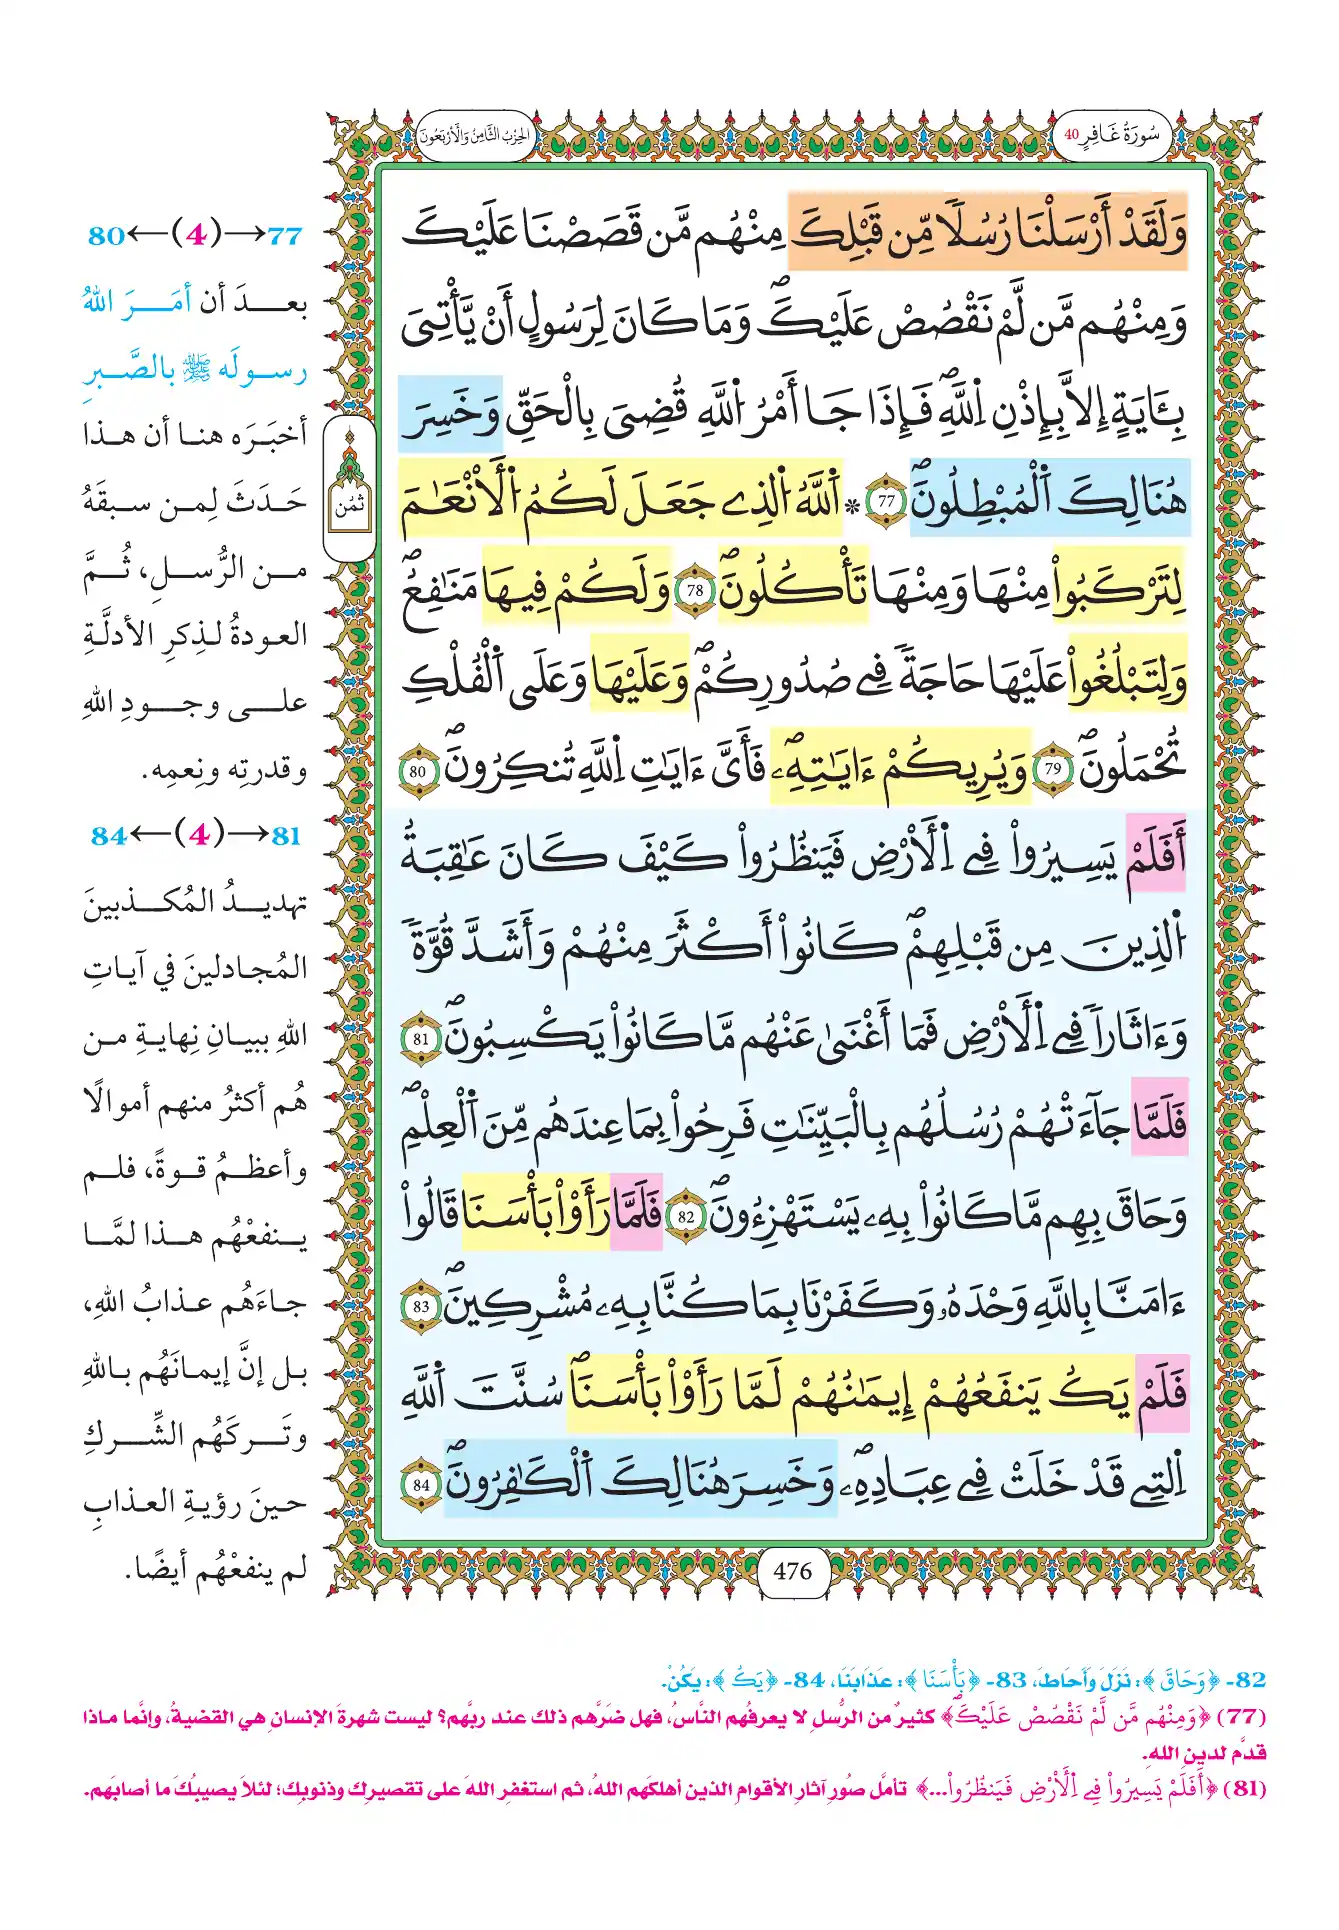 سُورَةُ غَافِرٍ 40
الحِزْبُ الثَّامِنُ وَالأَرْبَعُونَ
وَلَقَدْ أَرْسَلْنَا رُسُلًا مِّن قَبْلِكَ مِنْهُم مَّن قَصَصْنَا عَلَيْكَ
وَمِنْهُم مَّن لَّمْ نَقْصُصْ عَلَيْكَ وَمَا كَانَ لِرَسُولٍ أَنْ يَّأْتِيَ
بِـَٔايَةٍ إِلَّا بِإِذْنِ اِللَّهِ فَإِذَا جَا أَمْرُ اُللَّهِ قُضِيَ بِالْحَقِّ وَخَسِرَ
هُنَالِكَ اَلْمُبْطِلُونَ 77 * اَللَّهُ اُلذِے جَعَلَ لَكُمُ اُلْأَنْعَٰمَ
لِتَرْكَبُواْ مِنْهَا وَمِنْهَا تَأْكُلُونَ 78 وَلَكُمْ فِيهَا مَنَٰفِعُ
وَلِتَبْلُغُواْ عَلَيْهَا حَاجَةً فِے صُدُورِكُمْ وَعَلَيْهَا وَعَلَى اَلْفُلْكِ
تُحْمَلُونَ 79 وَيُرِيكُمْ ءَايَٰتِهِۦ فَأَيَّ ءَايَٰتِ اِللَّهِ تُنكِرُونَ 80
أَفَلَمْ يَسِيرُواْ فِے اِلْأَرْضِ فَيَنظُرُواْ كَيْفَ كَانَ عَٰقِبَةُ
اُلذِينَ مِن قَبْلِهِمْ كَانُواْ أَكْثَرَ مِنْهُمْ وَأَشَدَّ قُوَّةً
وَءَاثَاراً فِے اِلْأَرْضِ فَمَا أَغْنَىٰ عَنْهُم مَّا كَانُواْ يَكْسِبُونَ 81
فَلَمَّا جَآءَتْهُمْ رُسُلُهُم بِالْبَيِّنَٰتِ فَرِحُواْ بِمَا عِندَهُم مِّنَ اَلْعِلْمِ
وَحَاقَ بِهِم مَّا كَانُواْ بِهِۦ يَسْتَهْزِءُونَ 82 فَلَمَّا رَأَوْاْ بَأْسَنَا قَالُواْ
ءَامَنَّا بِاللَّهِ وَحْدَهُۥ وَكَفَرْنَا بِمَا كُنَّا بِهِۦ مُشْرِكِينَ 83
فَلَمْ يَكُ يَنفَعُهُمْ إِيمَٰنُهُمْ لَمَّا رَأَوْاْ بَأْسَنَا سُنَّتَ اَللَّهِ
اِلتِے قَدْ خَلَتْ فِے عِبَادِهِۦ وَخَسِرَ هُنَالِكَ اَلْكَٰفِرُونَ 84
476
ثُمُن
77→(4)←80
بعدَ أن أمَرَ اللهُ
رسولَه ﷺ بالصَّبرِ
أخبَرَه هنا أن هذا
حَدَثَ لِمن سبقَهُ
من الرُّسلِ، ثُمَّ
العودةُ لذِكرِ الأدلَّةِ
على وجودِ اللهِ
وقدرتِه ونِعمِه.
81→(4)←84
تهديدُ المُكذبينَ
المُجادلينَ في آياتِ
اللهِ ببيانِ نِهايةِ من
هُم أكثرُ منهم أموالًا
وأعظمُ قوةً، فلم
ينفعْهُم هذا لمَّا
جاءَهُم عذابُ اللهِ،
بل إنَّ إيمانَهُم باللهِ
وتَركَهُم الشِّركِ
حينَ رؤيةِ العذابِ
لم ينفعْهُم أيضًا.
82- ﴿وَحَاقَ﴾: نَزَلَ وَأَحَاطَ، 83- ﴿بَأْسَنَا﴾: عَذَابَنَا، 84- ﴿يَكُ﴾: يَكُنْ.
(77) ﴿وَمِنْهُم مَّن لَّمْ نَقْصُصْ عَلَيْكَ﴾ كثيرٌ من الرُّسلِ لا يعرفُهم النَّاسُ، فهل ضَرَّهم ذلك عند ربِّهم؟ ليست شهرةُ الإنسانِ هي القضيةُ، وإنَّما ماذا
قدَّم لدينِ اللهِ.
(81) ﴿أَفَلَمْ يَسِيرُواْ فِے اِلْأَرْضِ فَيَنظُرُواْ...﴾ تأمَّل صُورَ آثارِ الأقوامِ الذين أهلكَهم اللهُ، ثم استغفرِ اللهَ على تقصيرِك وذنوبِك؛ لئلا يصيبُكَ ما أصابَهم.